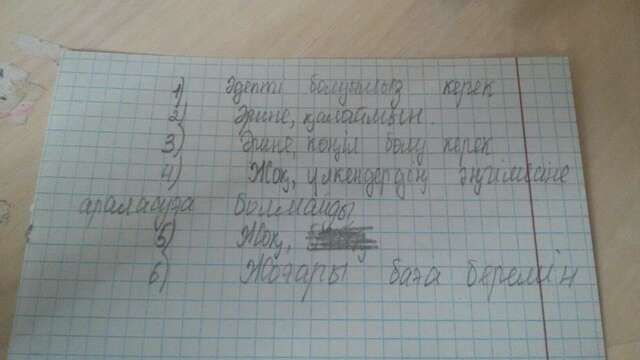 1) Әдепті болуыңыз керек
2) Әрине, қалаймын.
3) Әрине, көңіл бөлу керек
4) Жоқ, үлкендердің әңгімесіне
араласуға болмайды
5) Жоқ,
6) Жоғары баға беремін